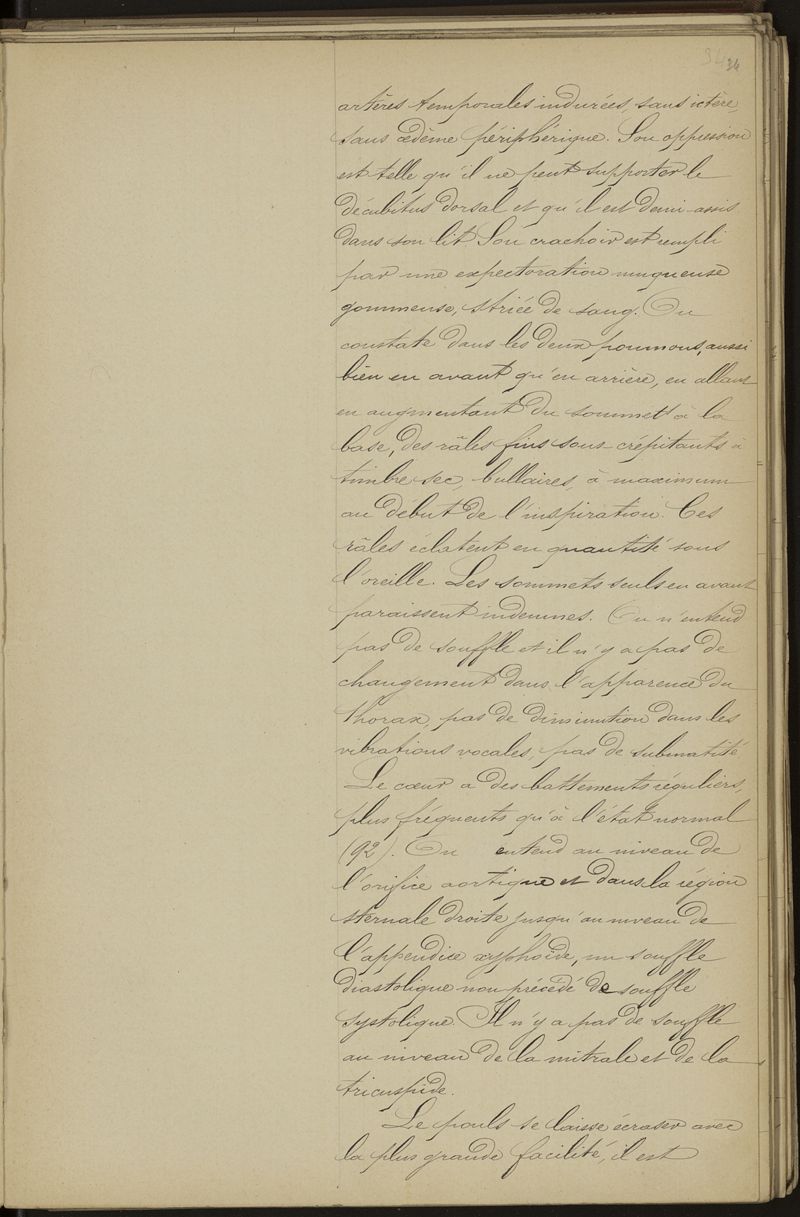 34
artères temporales indurées, sans ictère,
sans œdème périphérique. Son oppression
est telle qu'il ne peut supporter le
décubitus dorsal et qu'il est demi-assis
dans son lit. Son crachoir est rempli
par une expectoration muqueuse
gommeuse, striée de sang. On
constate dans les deux poumons, aussi
bien en avant qu'en arrière, en allant
en augmentant du sommet à la
base, des râles fins sous-crépitants à
timbre sec bullaires, à maximum
au début de l'inspiration. Ces
râles éclatent en quantité sous
l'oreille. Les sommets seuls en avant
paraissent indemnes. On n'entend
pas de souffle et il n'y a pas de
changement dans l'apparence du
thorax, pas de diminution dans les
vibrations vocales, pas de submatité
Le cœur a des battements réguliers,
plus fréquents qu'à l'état normal
(92). On entend au niveau de
l'orifice aortique et dans la région
sternale droite jusqu'au niveau de
l'appendice xyphoïde, un souffle
diastolique non précédé de souffle
systolique. Il n'y a pas de souffle
au niveau de la mitrale et de la
tricuspide.
Le pouls se laisse écraser avec
la plus grande facilité, il est